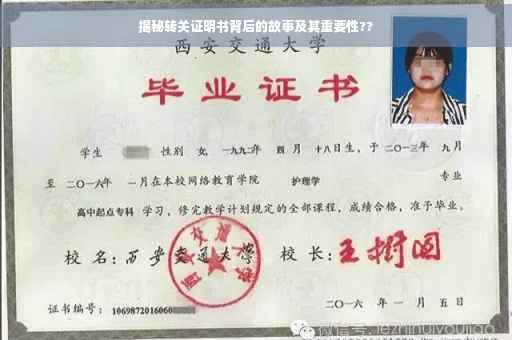 揭秘转关证明书背后的故事及其重要性??
西安交通大学
毕业证书
学生 性别 女, 一九九二年 四 月 十八日生, 于 二〇一三年 九月
至 二〇一六年 一月在本校网络教育学院 护理学 专业
高中起点专科 学习, 修完教学计划规定的全部课程, 成绩合格, 准予毕业。
校 名: 西安交通大学 校 长: 王树国
西安交通大学
证书编号: 1069872016060
二〇一六 年 一 月 五 日
微信号: jezhinuiyoujiao